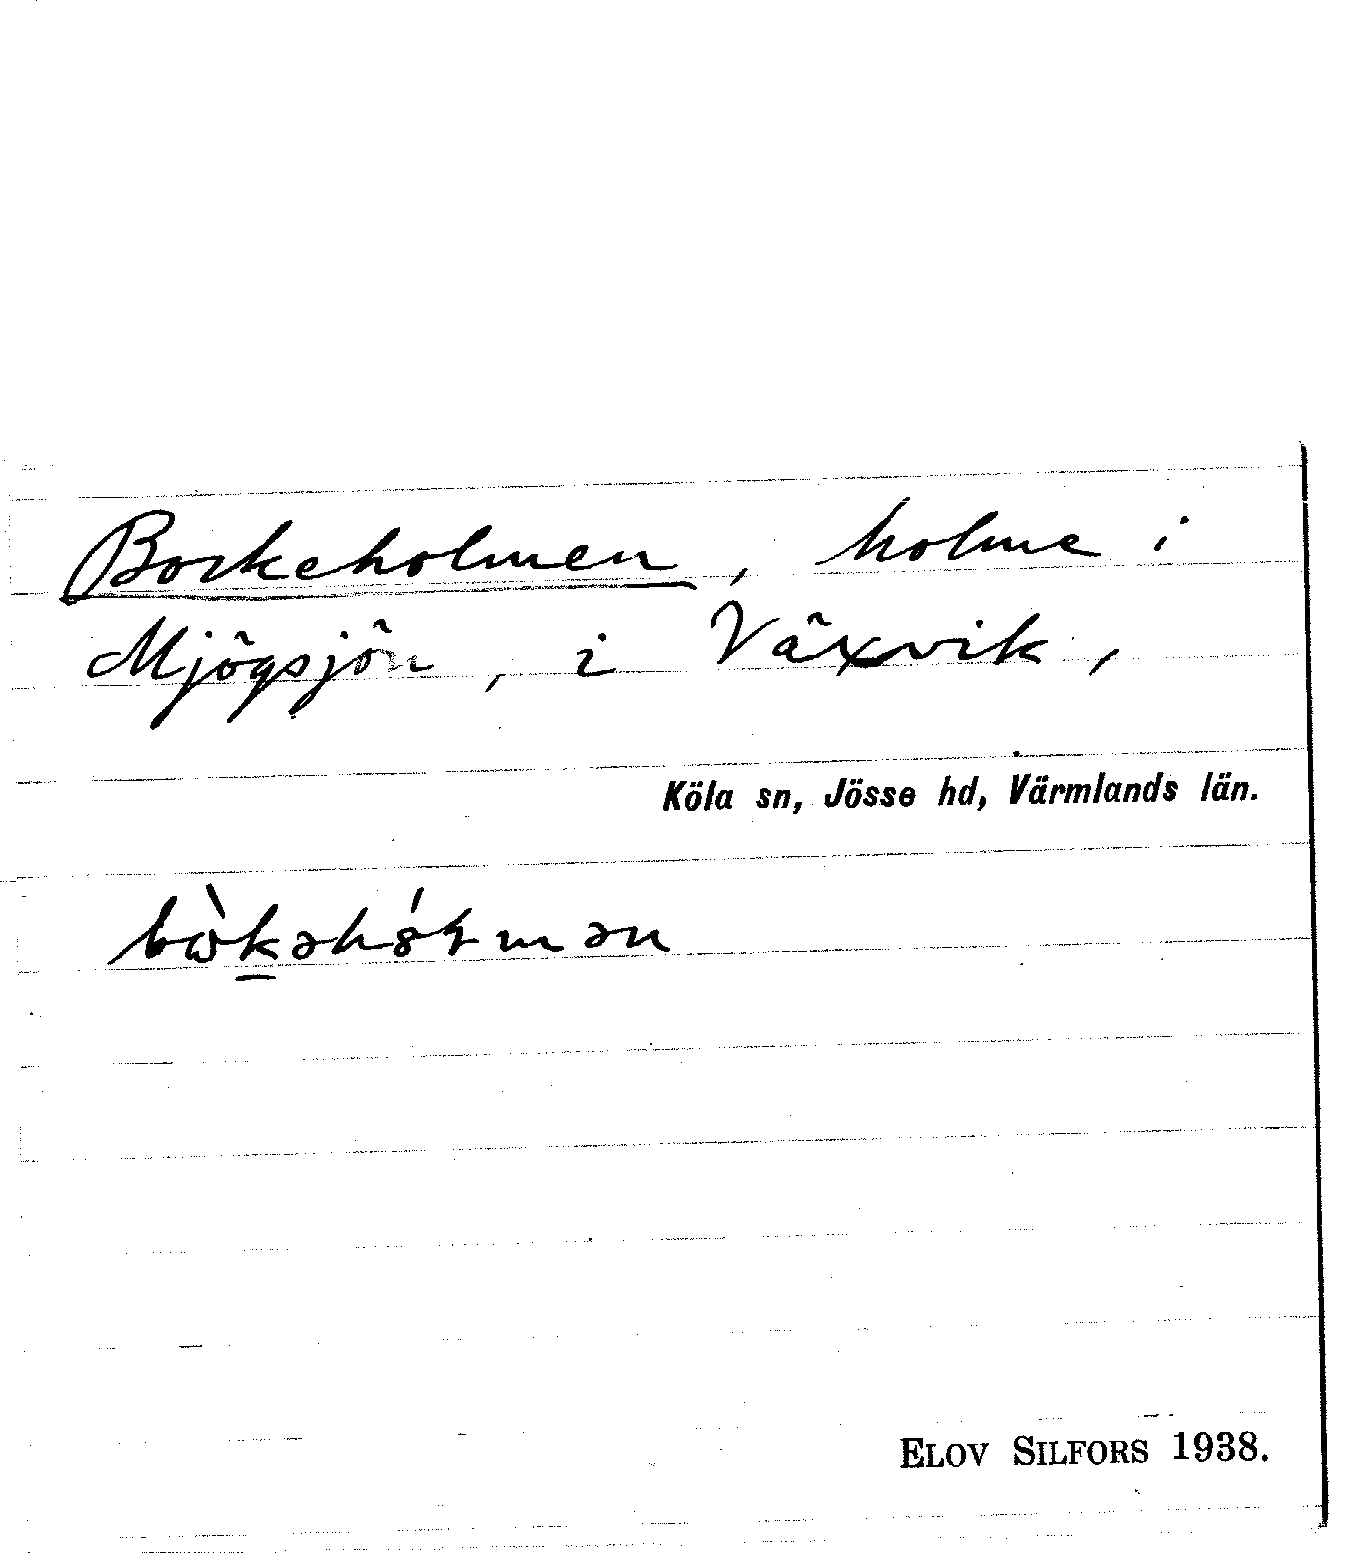 Bockeholmen, holme i
Mjögsjön, i Växvik,
Köla sn, Jösse hd, Värmlands län.
ELOV SILFORS 1938.